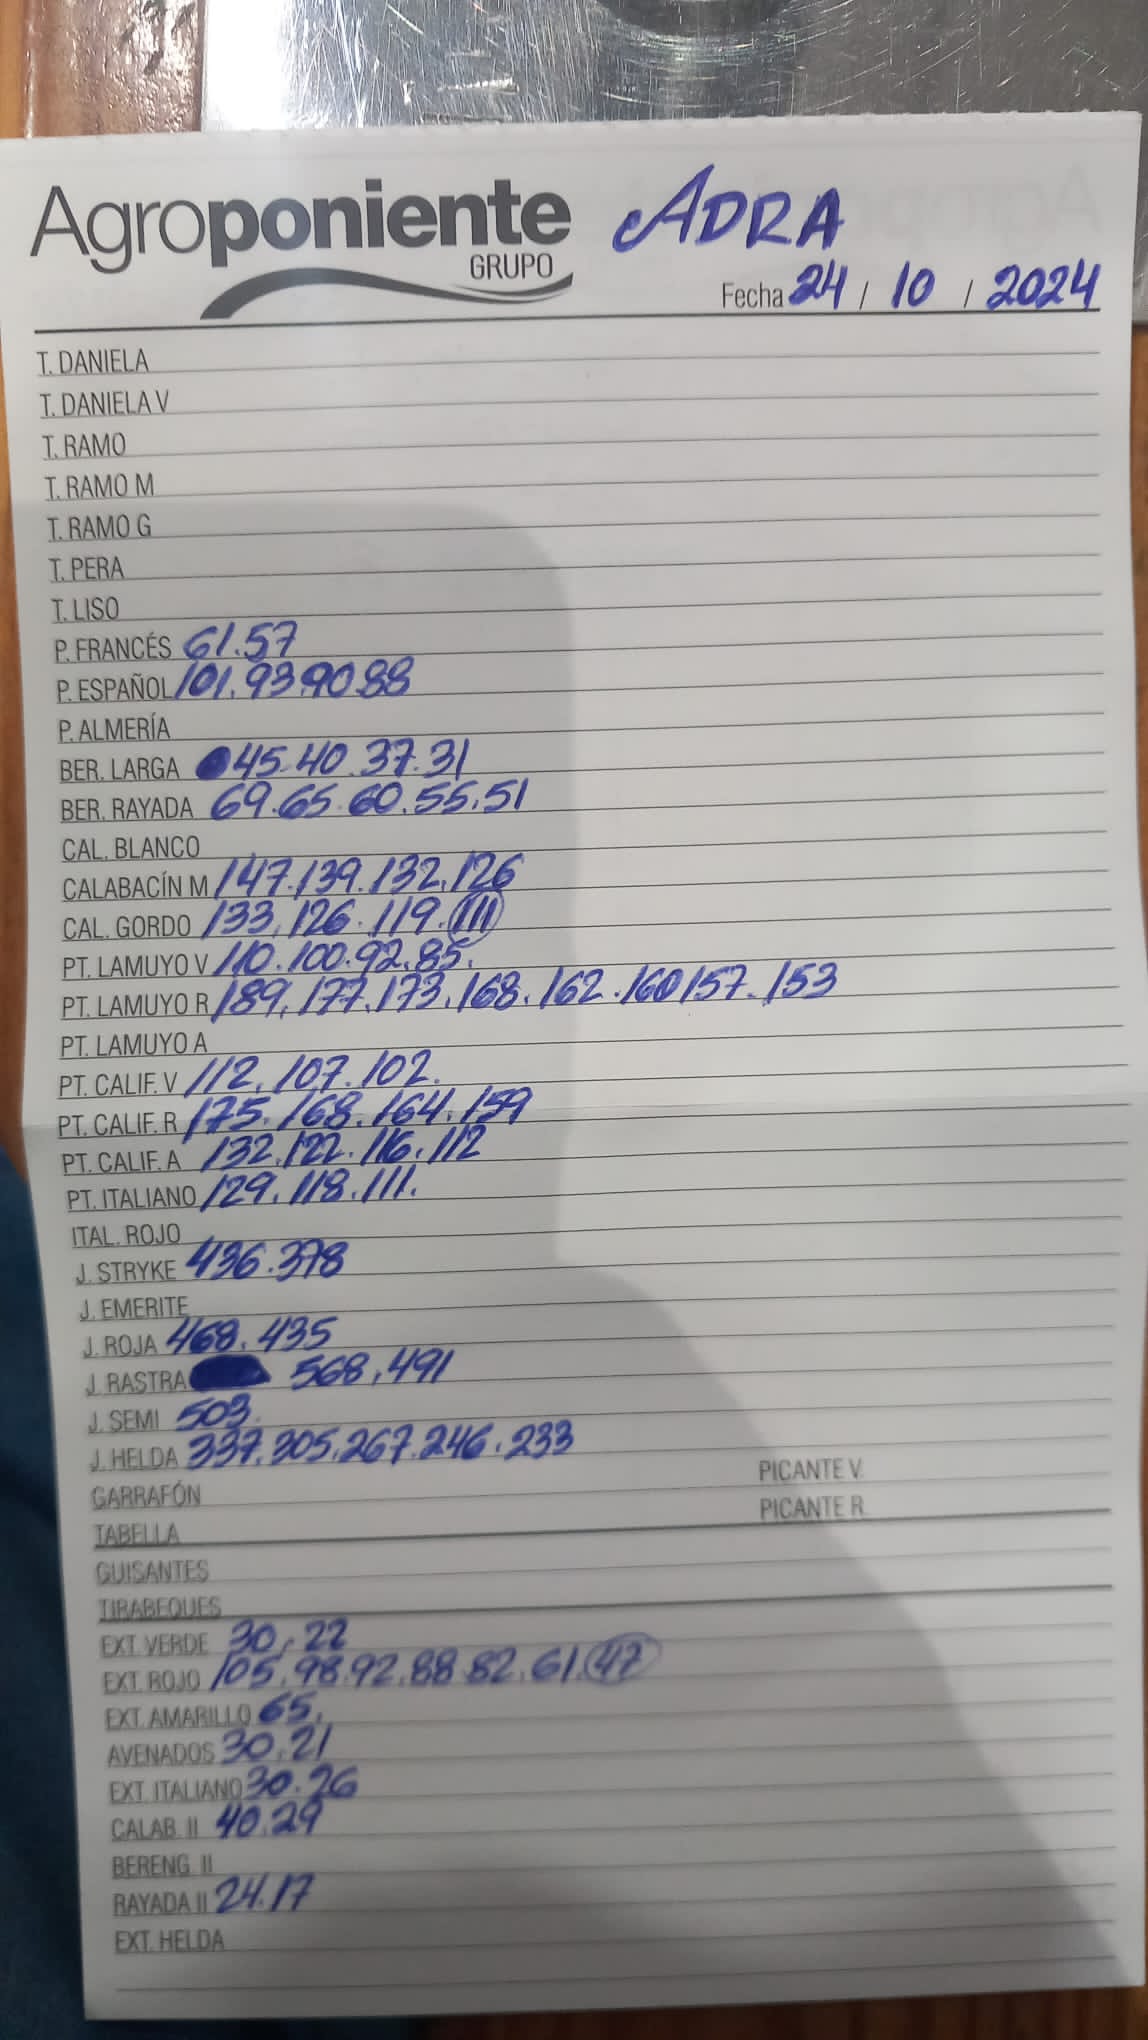 Agroponiente
GRUPO
ADRA
Fecha 24 / 10 / 2024
T. DANIELA
T. DANIELA V
T. RAMO
T. RAMO M
T. RAMO G
T. PERA
T. LISO
P. FRANCÉS 61.57
P. ESPAÑOL 101.93.90.88
P. ALMERÍA
BER. LARGA 45.40.37.31
BER. RAYADA 69.65.60.55.51
CAL. BLANCO
CALABACÍN M 147.139.132.126
CAL. GORDO 133.126.119.111
PT. LAMUYO V 110.100.92.85.
PT. LAMUYO R 189.177.173.168.162.160 157.153
PT. LAMUYO A
PT. CALIF. V 112.107.102.
PT. CALIF. R 175.168.164.159
PT. CALIF. A 132.122.116.112
PT. ITALIANO 129.118.111.
ITAL. ROJO
J. STRYKE 436.378
J. EMERITE
J. ROJA 468.435
J. RASTRA 568.491
J. SEMI 503.
J. HELDA 337.305.267.246.233
GARRAFÓN PICANTE V.
TABELLA PICANTE R.
GUISANTES
TIRABEQUES
EXT. VERDE 30.22
EXT. ROJO 105.98.92.88.82.61.47
EXT. AMARILLO 65.
AVENADOS 30.21
EXT. ITALIANO 30.26
CALAB. II 40.29
BERENG. II
RAYADA II 24.17
EXT. HELDA